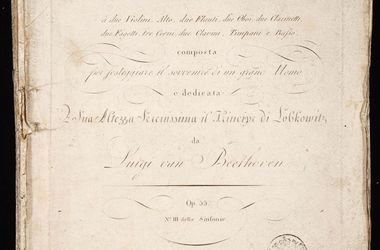 à due Violini, Alto, due Flauti, due Oboi, due Clarinetti,
due Fagotti, tre Corni, due Clarini, Timpani e Basso
composta
per festeggiare il sovvenire di un grand Uomo
e dedicata
A Sua Altezza Serenissima il Principe di Lobkowitz
da
Luigi van Beethoven
Op. 55
No. III delle Sinfonie